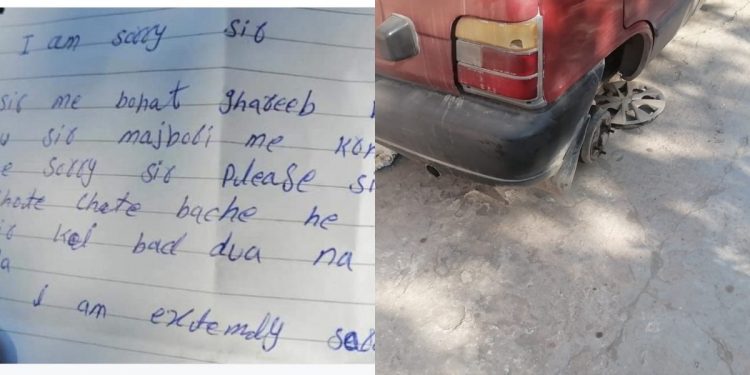 I am sorry sir
sir me bohat ghareeb
sir majbori me
sorry sir Please
chote bache he
bad dua na
I am extemdly